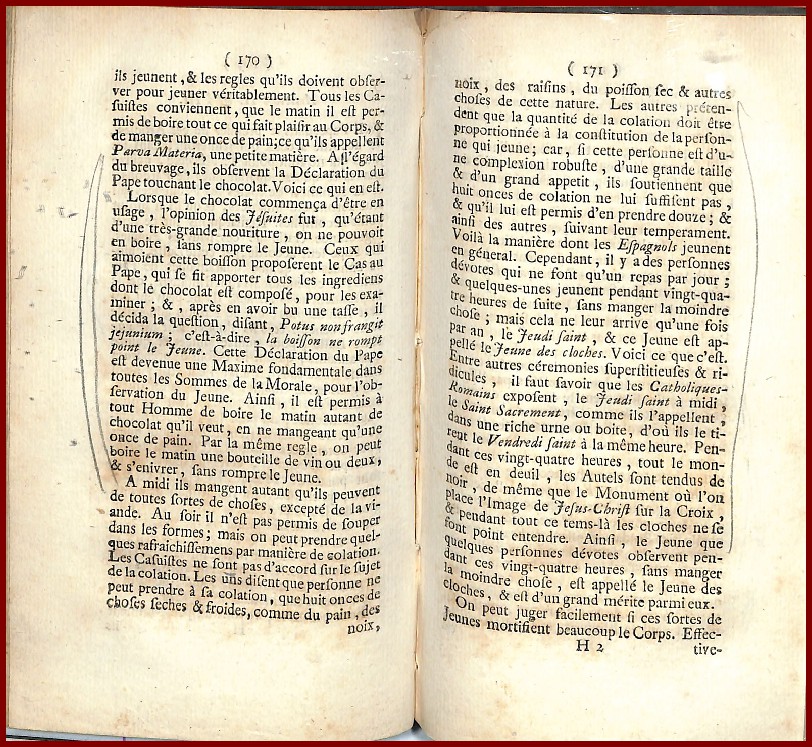 ( 170 )
ils jeunent, & les regles qu'ils doivent obser-
ver pour jeuner véritablement. Tous les Ca-
suistes conviennent, que le matin il est per-
mis de boire tout ce qui fait plaisir au Corps, &
de manger une once de pain; ce qu'ils appellent
Parva Materia, une petite matière. A l'égard
du breuvage, ils observent la Déclaration du
Pape touchant le chocolat. Voici ce qui en est.
Lorsque le chocolat commença d'être en
usage, l'opinion des Jésuites fut, qu'étant
d'une très-grande nouriture, on ne pouvoit
en boire, sans rompre le Jeune. Ceux qui
aimoient cette boisson proposerent le Cas au
Pape, qui se fit apporter tous les ingrediens
dont le chocolat est composé, pour les exa-
miner; &, après en avoir bu une tasse, il
décida la question, disant, Potus non frangit
jejunium; c'est-à-dire, la boisson ne rompt
point le Jeune. Cette Déclaration du Pape
est devenue une Maxime fondamentale dans
toutes les Sommes de la Morale, pour l'ob-
servation du Jeune. Ainsi, il est permis à
tout Homme de boire le matin autant de
chocolat qu'il veut, en ne mangeant qu'une
once de pain. Par la même regle, on peut
boire le matin une bouteille de vin ou deux,
& s'enivrer, sans rompre le Jeune.
A midi ils mangent autant qu'ils peuvent
de toutes sortes de choses, excepté de la vi-
ande. Au soir il n'est pas permis de souper
dans les formes; mais on peut prendre quel-
ques rafraichissemens par manière de colation.
Les Casuistes ne sont pas d'accord sur le sujet
de la colation. Les uns disent que personne ne
peut prendre à sa colation, que huit onces de
choses seches & froides, comme du pain, des
noix,
( 171 )
noix, des raisins, du poisson sec & autres
choses de cette nature. Les autres préten-
dent que la quantité de la colation doit être
proportionnée à la constitution de la person-
ne qui jeune; car, si cette personne est d'u-
ne complexion robuste, d'une grande taille
& d'un grand appetit, ils soutiennent que
huit onces de colation ne lui suffisent pas,
& qu'il lui est permis d'en prendre douze; &
ainsi des autres, suivant leur temperament.
Voilà la manière dont les Espagnols jeunent
en géneral. Cependant, il y a des personnes
dévotes qui ne font qu'un repas par jour;
& quelques-unes jeunent pendant vingt-qua-
tre heures de suite, sans manger la moindre
chose; mais cela ne leur arrive qu'une fois
par an, le Jeudi saint, & ce Jeune est ap-
pellé le Jeune des cloches. Voici ce que c'est.
Entre autres céremonies superstitieuses & ri-
dicules, il faut savoir que les Catholiques-
Romains exposent, le Jeudi saint à midi,
le Saint Sacrement, comme ils l'appellent,
dans une riche urne ou boite, d'où ils le ti-
rent le Vendredi saint à la même heure. Pen-
dant ces vingt-quatre heures, tout le mon-
de est en deuil, les Autels sont tendus de
noir, de même que le Monument où l'on
place l'Image de Jesus-Christ sur la Croix,
& pendant tout ce tems-là les cloches ne se
font point entendre. Ainsi, le Jeune que
quelques personnes dévotes observent pen-
dant ces vingt-quatre heures, sans manger
la moindre chose, est appellé le Jeune des
cloches, & est d'un grand mérite parmi eux.
On peut juger facilement si ces sortes de
Jeunes mortifient beaucoup le Corps. Effec-
H 2 tive-